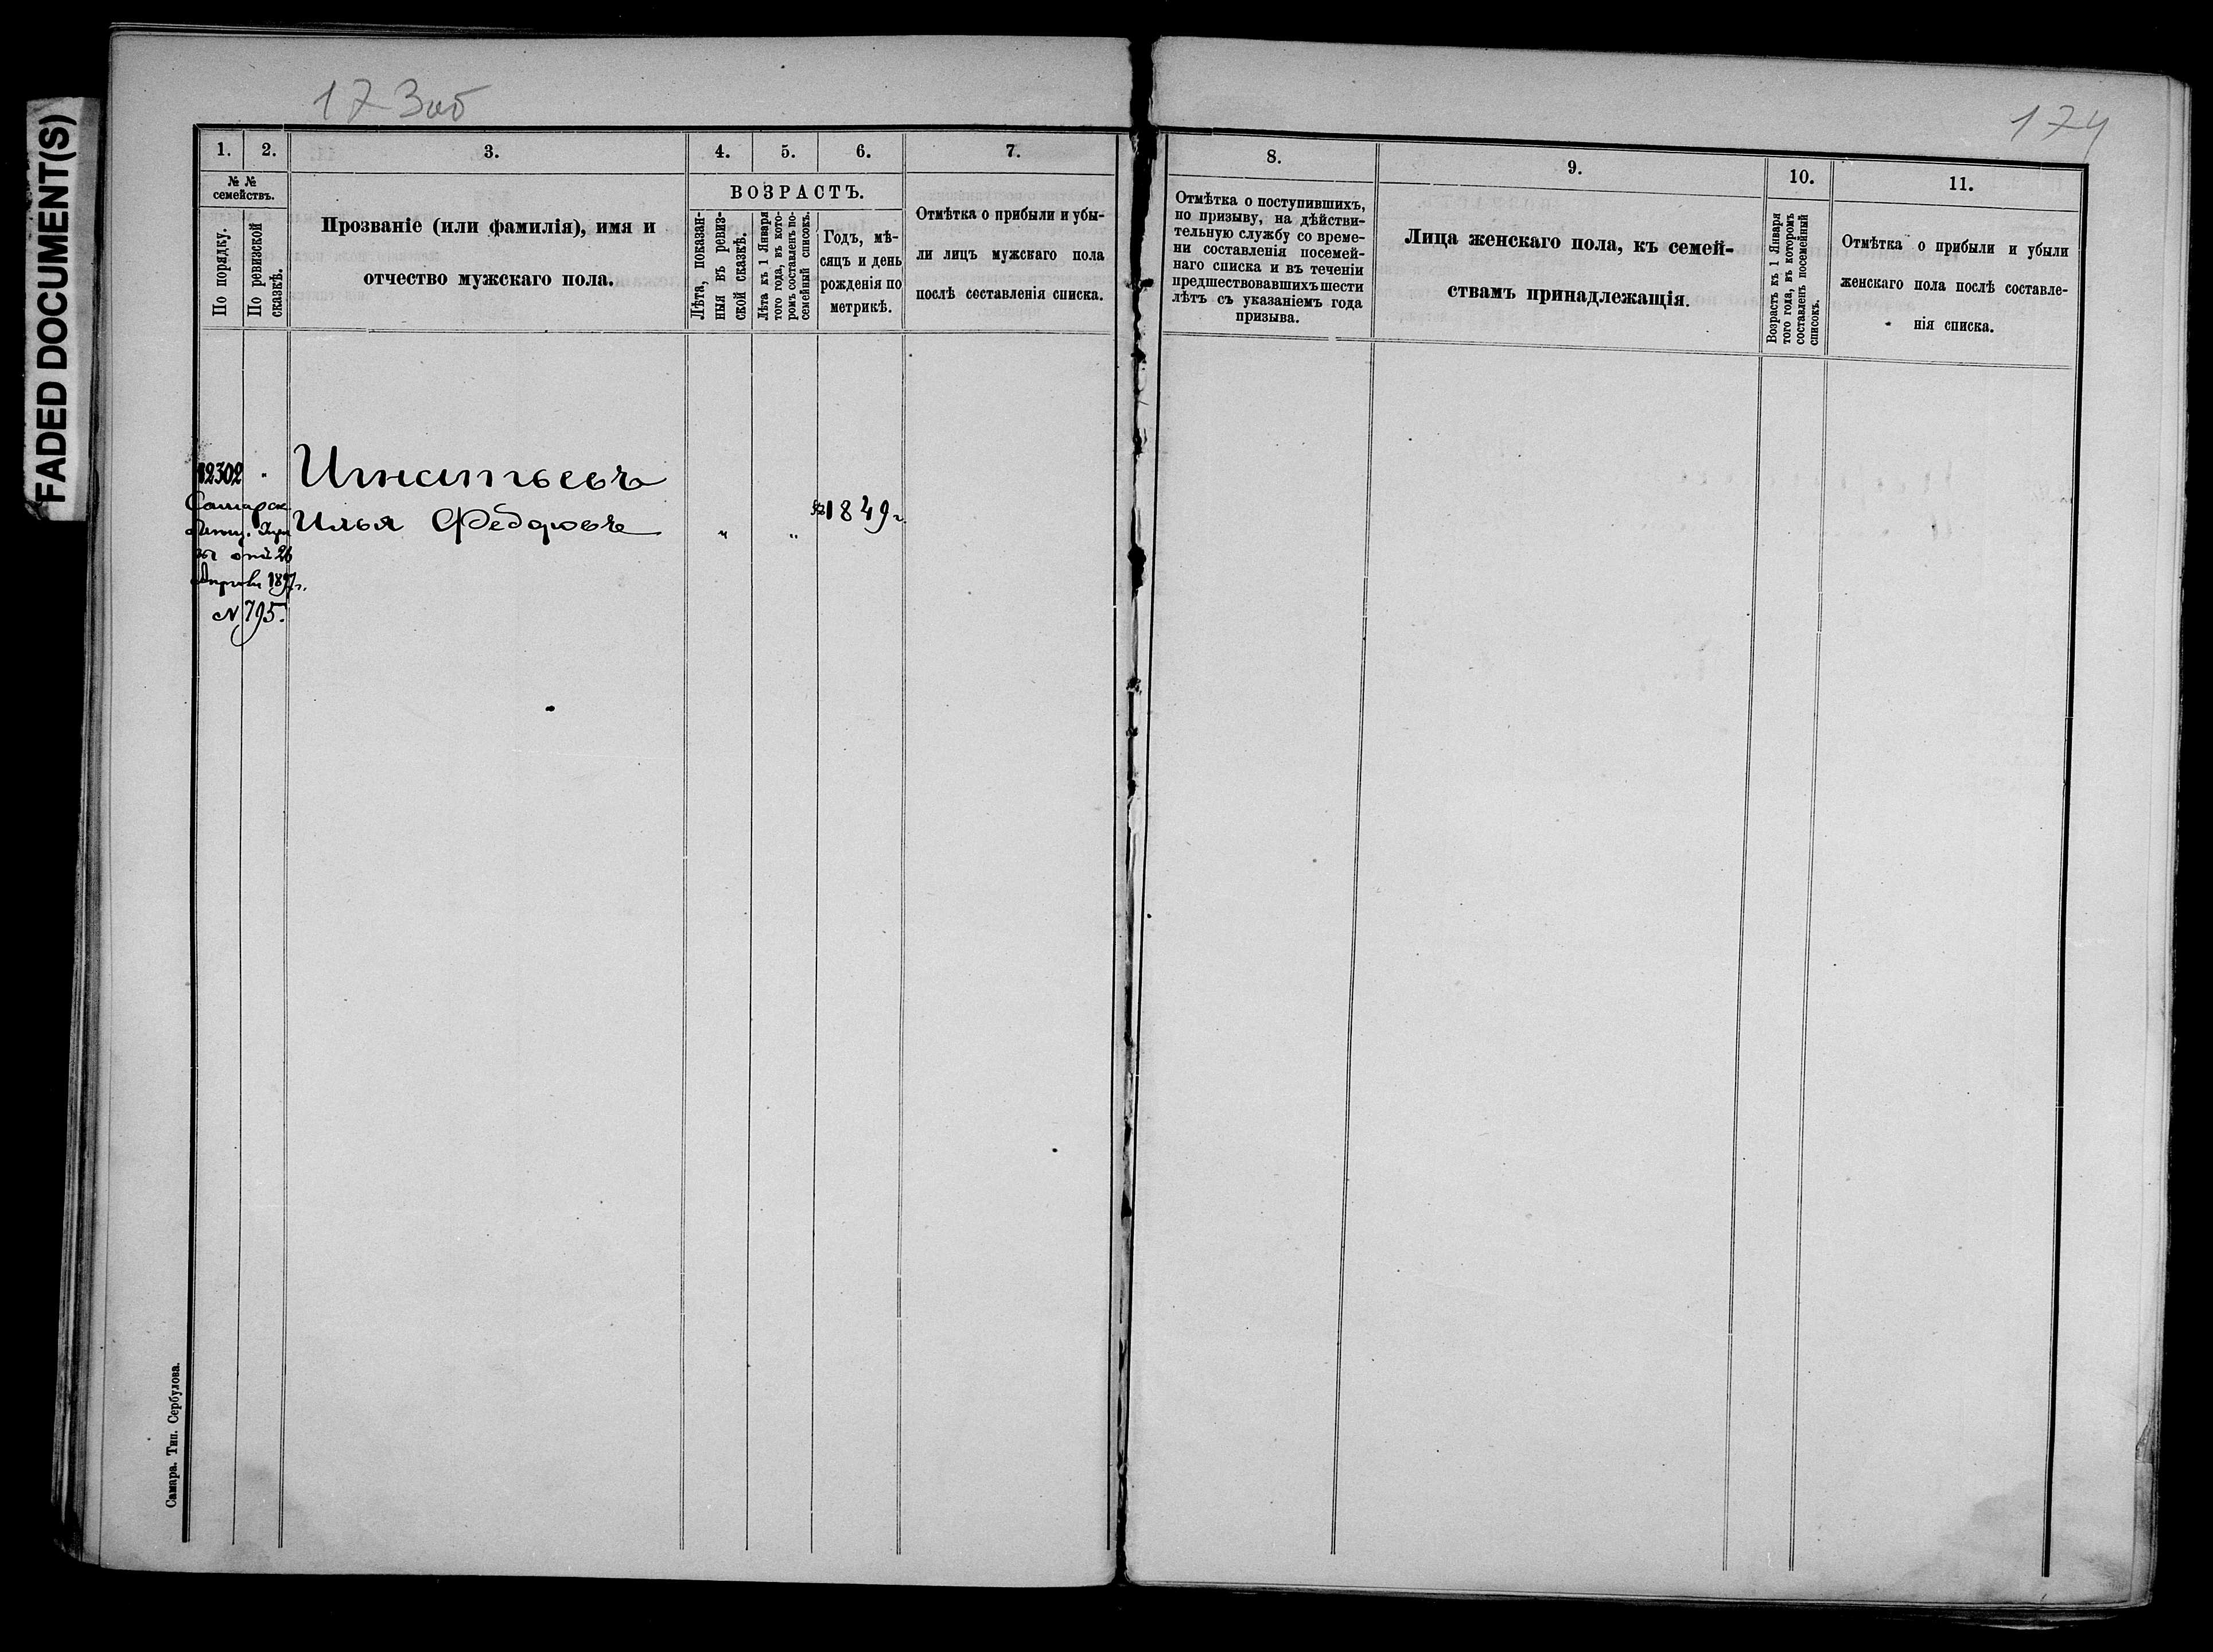 FADED DOCUMENT(S)
173об
174
1. 2. 3. 4. 5. 6. 7.
№ №
семействъ.
По порядку.
По ревизской
сказкѣ.
Прозваніе (или фамилія), имя и
отчество мужскаго пола.
ВОЗРАСТЪ.
Лѣта, показан-
ныя въ ревиз-
ской сказкѣ.
Лѣта къ 1 Января
того года, въ кото-
ромъ составленъ по-
семейный списокъ.
Годъ, мѣ-
сяцъ и день
рожденія по
метрикѣ.
Отмѣтка о прибыли и убы-
ли лицъ мужскаго пола
послѣ составленія списка.
8. 9. 10. 11.
Отмѣтка о поступившихъ,
по призыву, на дѣйстви-
тельную службу со време-
ни составленія посемей-
наго списка и въ теченіи
предшествовавшихъ шести
лѣтъ съ указаніемъ года
призыва.
Лица женскаго пола, къ семей-
ствамъ принадлежащія.
Возрастъ къ 1 Января
того года, въ которомъ
составленъ посемейный
списокъ.
Отмѣтка о прибыли и убыли
женскаго пола послѣ составле-
нія списка.
12302 " Игнатьевъ
Илья Федоровъ " " 1849 г.
Самарск.
отъ 26
Апрѣля 1897 г.
№ 795.
Самара. Тип. Сербулова.